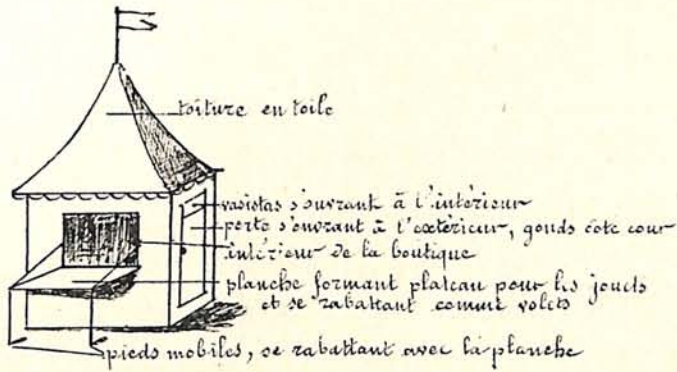 toiture en toile
vasistas s'ouvrant à l'intérieur
porte s'ouvrant à l'extérieur, gonds côté cour
intérieur de la boutique
planche formant plateau pour les jouets
et se rabattant comme volets
pieds mobiles, se rabattant avec la planche